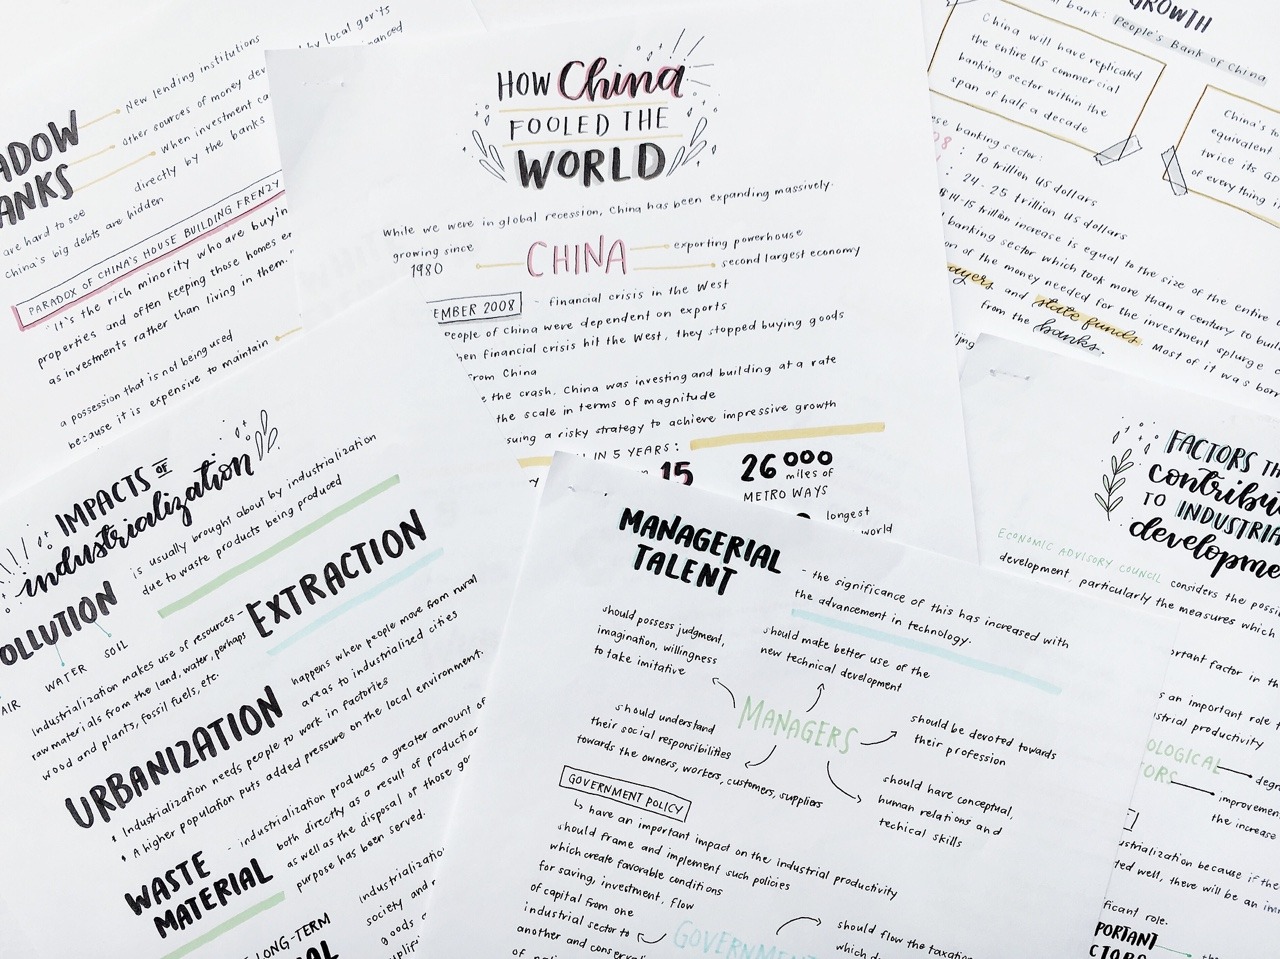 New lending institutions
by local gov'ts
other sources of money dev
when investment ca
directly by the banks
ADOW
ANKS
are hard to see
China's big debts are hidden
PARADOX OF CHINA'S HOUSE BUILDING FRENZY
"It's the rich minority who are buyin
properties and often keeping those homes e
as investments rather than living in them.
a possession that is not being used
because it is expensive to maintain
HOW China
FOOLED THE
WORLD
While we were in global recession, China has been expanding massively.
growing since
1980
CHINA
exporting powerhouse
second largest economy
EMBER 2008
- financial crisis in the West
eople of China were dependent on exports
hen financial crisis hit the West, they stopped buying goods
from China
e the crash, China was investing and building at a rate
the scale in terms of magnitude
suing a risky strategy to achieve impressive growth
IN 5 YEARS:
15
26000
miles of
METRO WAYS
longest
world
GROWTH
bank: People's Bank of China
China will have replicated
the entire US commercial
banking sector within the
span of half a decade
China's to
equivalent
twice its GD
of everything i
ese banking sector:
: 10 trillion US dollars
: 24-25 trillion US dollars
14-15 trillion increase is equal to the size of the entire
banking sector which took more than a century to buil
on of the money needed for the investment splurge c
ayers and state funds. Most of it was borr
from the banks.
IMPACTS OF
industrialization
OLLUTION
is usually brought about by industrialization
due to waste products being produced
AIR
WATER
SOIL
EXTRACTION
Industrialization makes use of resources -
raw materials from the land, water, perhaps
wood and plants, fossil fuels, etc.
URBANIZATION
happens when people move from rural
areas to industrialized cities
• Industrialization needs people to work in factories
• A higher population puts added pressure on the local environment.
WASTE
MATERIAL
- industrialization produces a greater amount of
both directly as a result of production
as well as the disposal of those go
purpose has been served.
LONG-TERM
industrializatio
society and r
goods
MANAGERIAL
TALENT
- the significance of this has increased with
the advancement in technology.
should possess judgment,
imagination, willingness
to take imitative
should make better use of the
new technical development
MANAGERS
should understand
their social responsibilities
towards the owners, workers, customers, suppliers
should be devoted towards
their profession
should have conceptual,
human relations and
techical skills
GOVERNMENT POLICY
↳ have an important impact on the industrial productivity
should frame and implement such policies
which create favorable conditions
for saving, investment, flow
of capital from one
industrial sector to
another and conserv
GOVERNMENT
should flow the taxation
which d
FACTORS TH
contribu
TO INDUSTRIA
developme
ECONOMIC ADVISORY COUNCIL considers the possi
development, particularly the measures which
ortant factor in th
s an important role
strial productivity
OLOGICAL
ORS
degr
improvemen
the increase
ustrialization because if the
ted well, there will be an in
ficant role.
PORTANT
CTORS